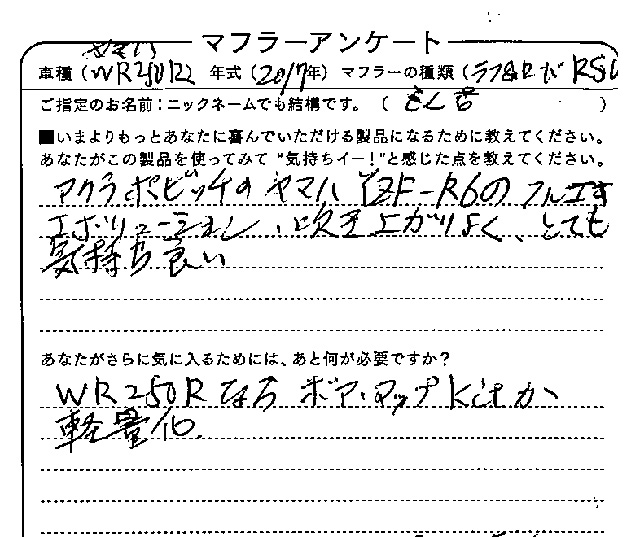 マフラーアンケート
車種（WR250R） 年式（2017年） マフラーの種類（ RSV
ご指定のお名前：ニックネームでも結構です。（ ）
■いまよりもっとあなたに喜んでいただける製品になるために教えてください。
あなたがこの製品を使ってみて“気持ちイー！”と感じた点を教えてください。
アクラポビッチのヤマハ YZF-R6の フルエキ
エボリューション、吹き上がりよく、とても
気持ち良い
あなたがさらに気に入るためには、あと何が必要ですか？
WR250Rなら ボア・マップKitか
軽量化.